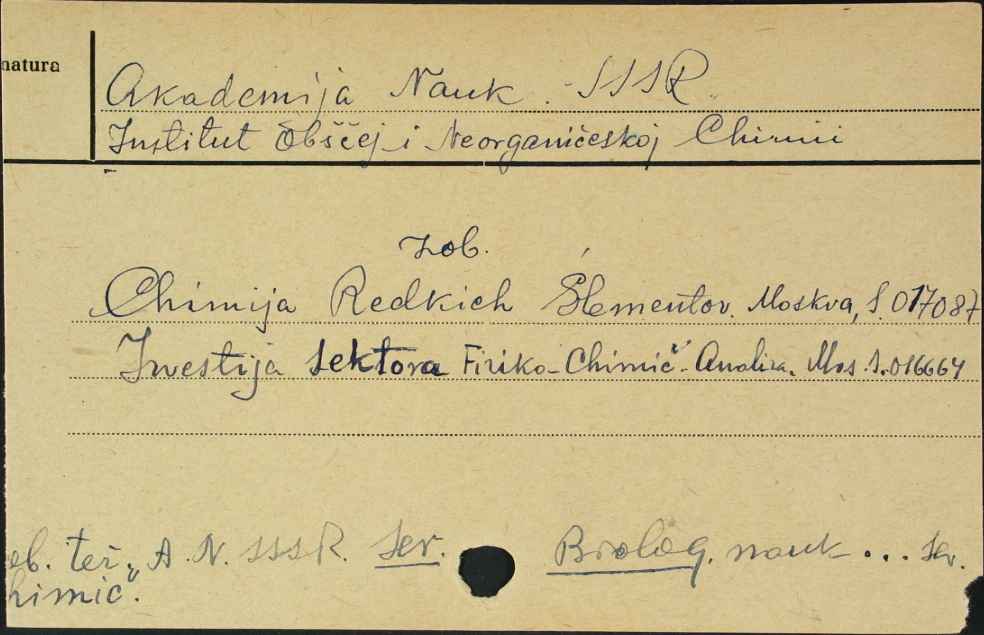 natura
Akademija Nauk. SSSR.
Institut Obščej i Neorganičeskoj Chimii
Zob.
Chimija Redkich Élementov. Moskva, S. 017087
Izvestija Sektora Fiziko-Chimič. Analiza. Mos. S. 016664
ob. też „A. N. SSSR. Ser. Biolog. nauk ... Ser.
himič.